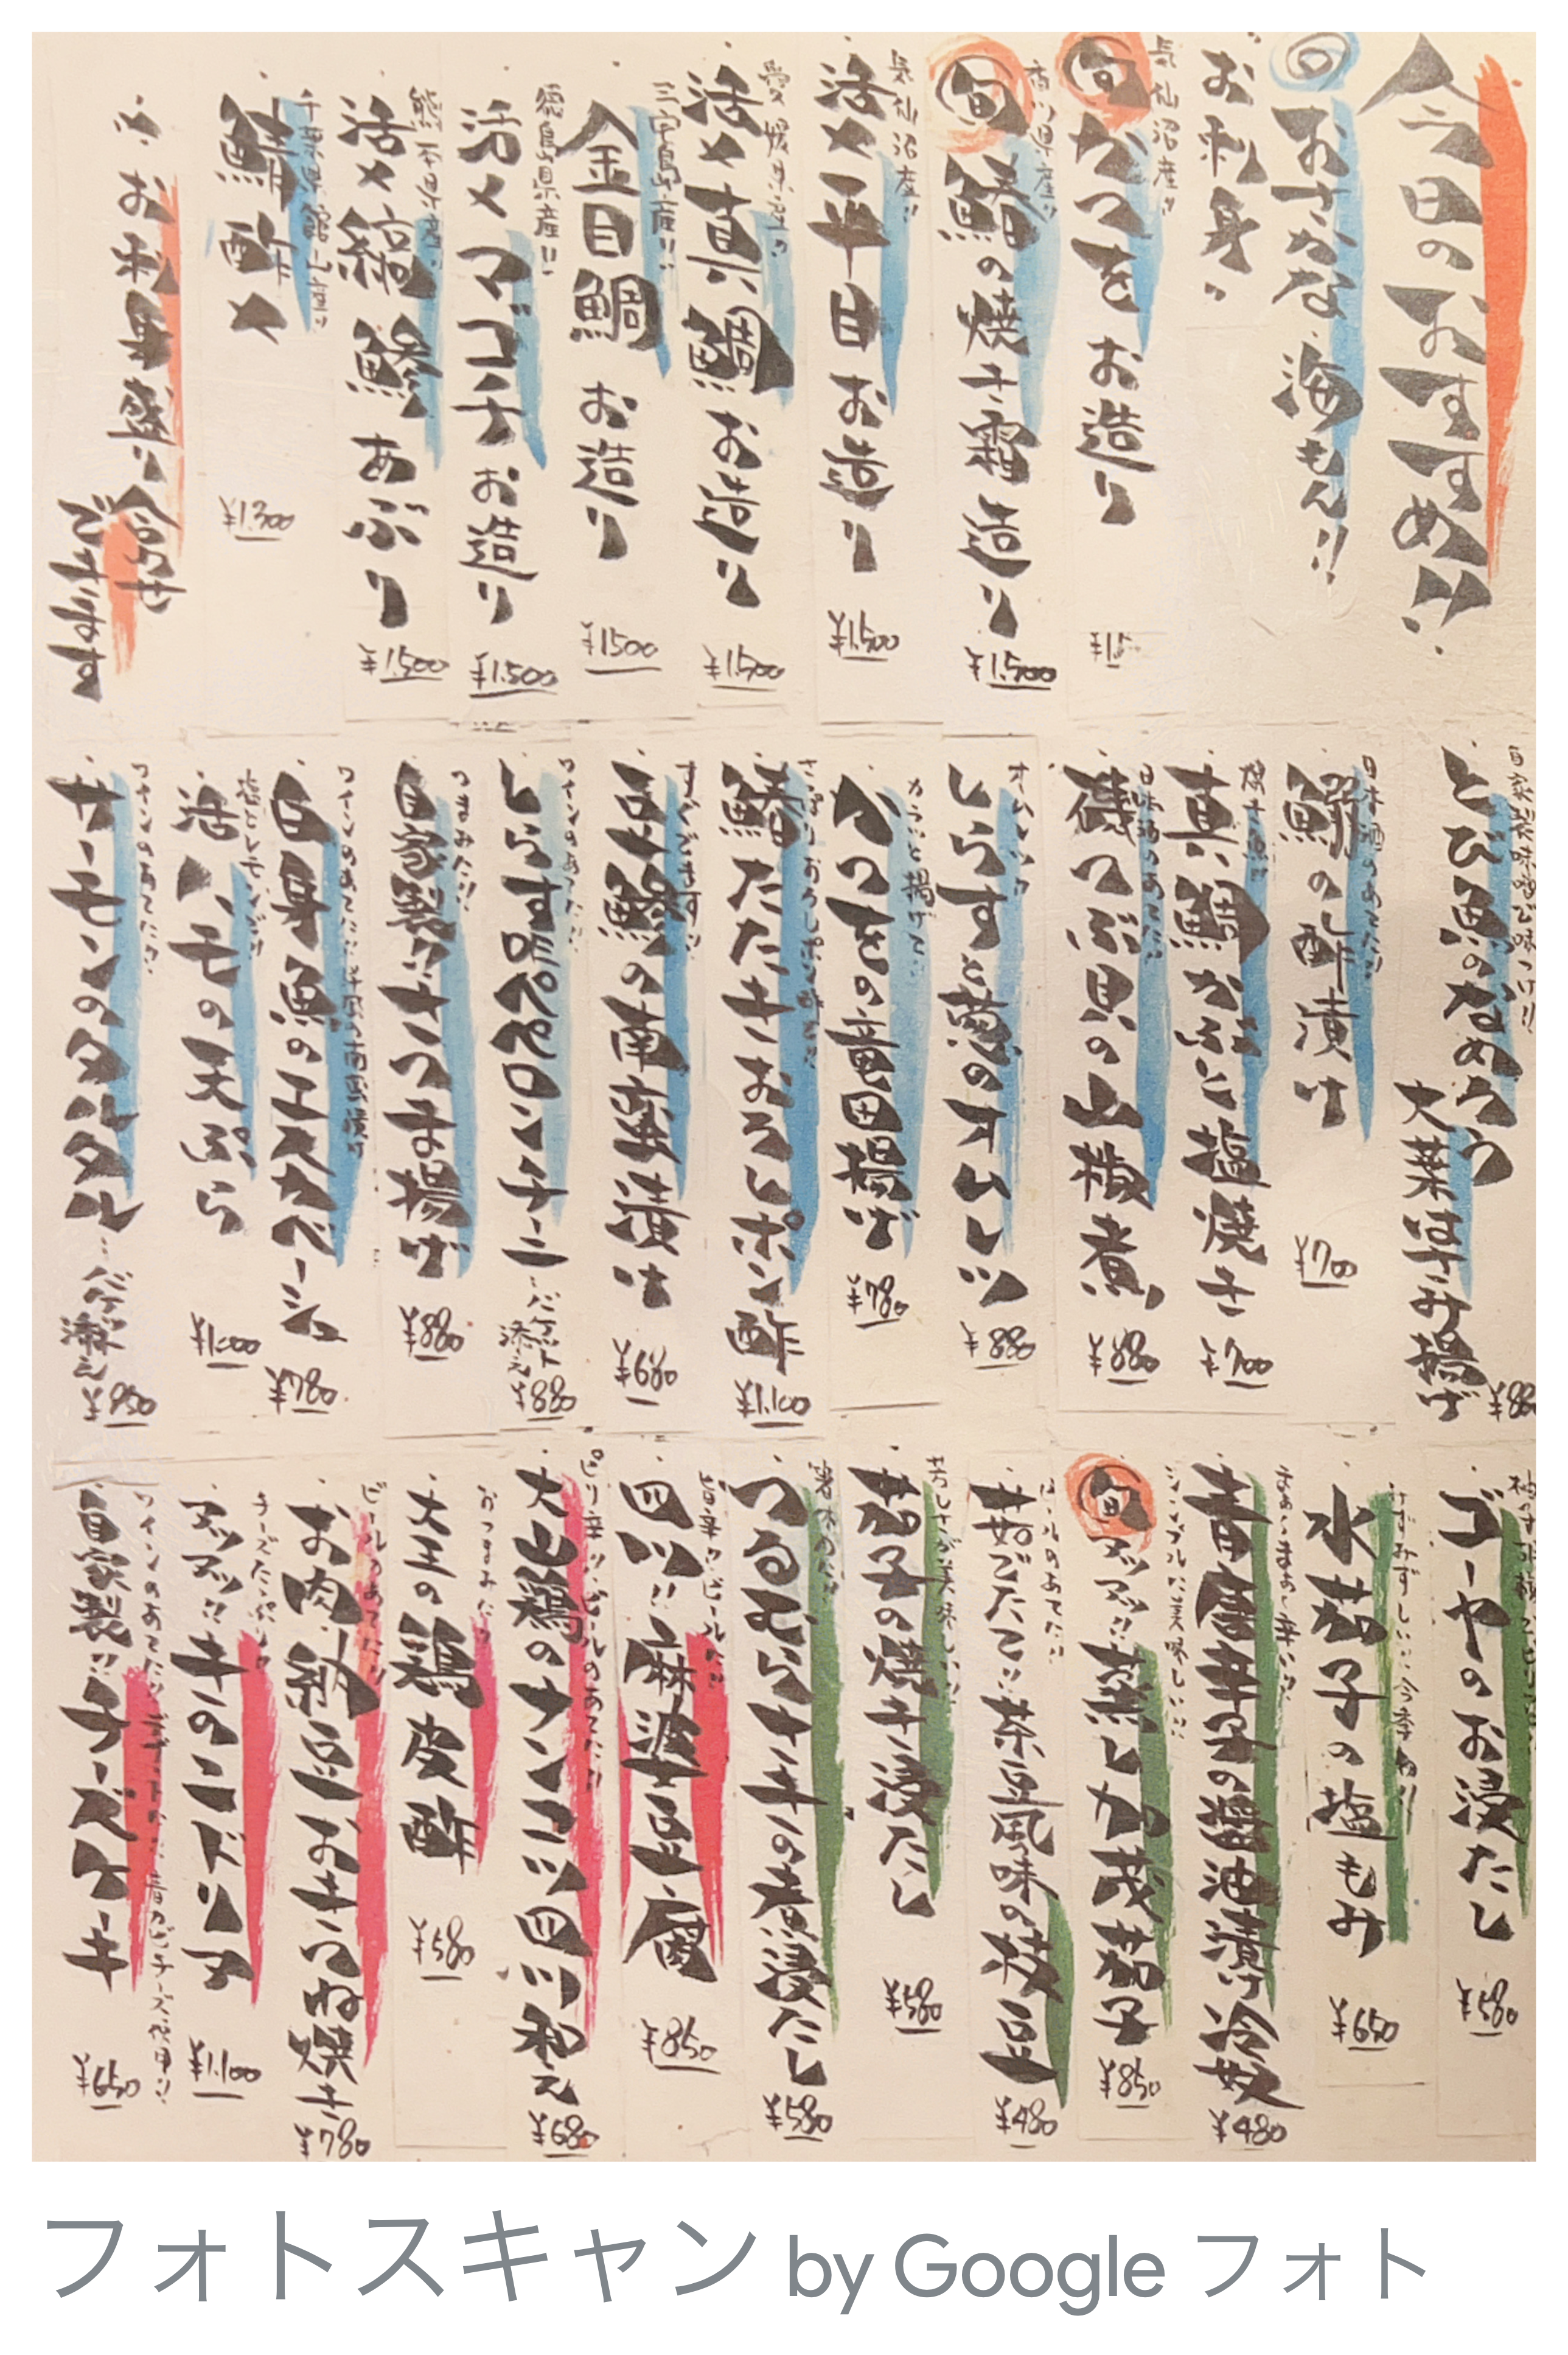 今日のおすすめ!!
おさかな 海もん!!
お刺身
気仙沼産!!
旬 かつを お造り
香川県産!!
旬 鰆の焼き霜造り ¥1,500
気仙沼産!!
活〆平目お造り ¥1,500
愛媛県産!!
活〆真鯛お造り ¥1,500
三宅島産!!
金目鯛お造り ¥1500
徳島県産!!
活〆マゴチお造り ¥1,500
熊本県産!!
活〆縞鯵あぶり ¥1,500
千葉県館山産!!
鯖酢〆 ¥1,300
お刺身盛り合わせ
できます
とび魚のなめろう
大葉包み揚げ
日本酒のあてに!!
の酢漬け ¥700
焼き魚!!
真鯛かぶと塩焼き ¥700
日本酒のあてに!!
磯つぶ貝の山椒煮 ¥880
オムレツ!!
しらすと葱のオムレツ ¥880
カラッと揚げて!!
かつをの竜田揚げ ¥780
さっぱりおろしポン酢で!!
鰆たたきおろしポン酢 ¥1,100
すぐでます!!
豆鯵の南蛮漬け ¥680
ワインのあてに!!
しらすペペロンチーニ…バゲット添え ¥880
つまみに!!
自家製!!さつま揚げ ¥880
ワインのあてに!!洋風の南蛮漬け
白身魚のエスカベーシュ ¥780
塩とレモンで!!
活ハモの天ぷら ¥1,000
ワインのあてに!!
サーモンのタルタル…バゲット添え ¥850
ゴーヤのお浸たし ¥580
みずみずしい!!今季初!!
水茄子の塩もみ ¥650
青唐辛子の醤油漬け冷奴 ¥480
シンプルに美味しい!!
旬 アツアツ!!蒸し加茂茄子 ¥850
ビールのあてに!!
茹でたて!!茶豆風味の枝豆 ¥480
茄子の焼き浸たし ¥580
つるむらさきの煮浸たし ¥580
旨辛!!ビールに!!
四川!!麻婆豆腐 ¥850
ピリ辛!!ビールのあてに!!
大山鶏のナンコツ四川和え ¥680
おつまみに!!
大王の鶏皮酢 ¥580
ビールのあてに!!
お肉!!納豆おきつね焼き ¥780
チーズたっぷり!!
アツアツ!!キーマのドリア ¥1,100
ワインのあてに!!デザートに!!青カビチーズ使用!!
自家製!!チーズケーキ ¥650
フォトスキャン by Google フォト